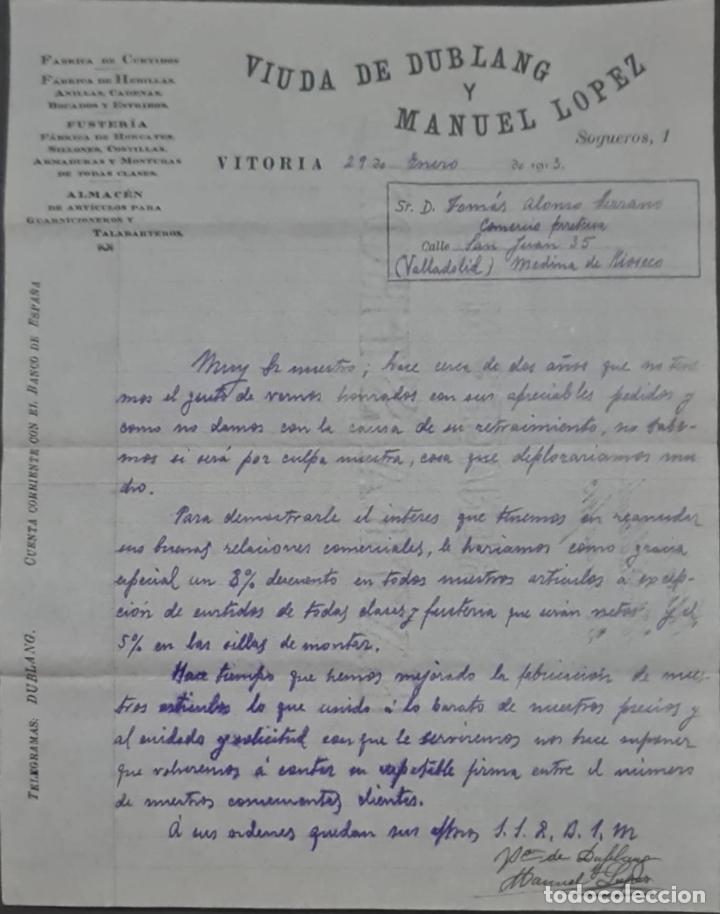 FABRICA DE CURTIDOS
FÁBRICA DE HEBILLAS,
ANILLAS, CADENAS,
BOCADOS Y ESTRIBOS.
FUSTERÍA
FÁBRICA DE HORCATES,
SILLONES, COSTILLAS,
ARMADURAS Y MONTURAS
DE TODAS CLASES.
ALMACÉN
DE ARTÍCULOS PARA
GUARNICIONEROS Y
TALABARTEROS.
VIUDA DE DUBLANG
Y
MANUEL LOPEZ
Sogueros, 1
VITORIA 29 de Enero de 1913.
Sr. D. Tomás Alonso Serrano
Comercio
Calle San Juan 35
(Valladolid) Medina de Rioseco
TELEGRAMAS: DUBLANG. CUENTA CORRIENTE CON EL BANCO DE ESPAÑA
Muy Sr nuestro; hace cerca de dos años que no tene
mos el gusto de vernos honrados con sus apreciables pedidos y
como no damos con la causa de su retraimiento, no sabe-
mos si será por culpa nuestra, cosa que deplorariamos mu
cho.
Para demostrarle el interes que tenemos en reanudar
sus buenas relaciones comerciales, le hariamos como gracia
especial un 8% descuento en todos nuestros articulos á excep-
ción de curtidos de todas clases y fusteria que serán netos y el
5% en las sillas de montar.
Hace tiempo que hemos mejorado la fabricación de nues-
tros articulos lo que unido á lo barato de nuestros precios y
al cuidado y solicitud con que le serviremos nos hace suponer
que volveremos á contar su respetable firma entre el número
de nuestros consecuentes clientes.
Á sus ordenes quedan sus afmos S. S. Q. B. S. M
Vda de Dublang
y
Manuel Lopez
todocoleccion